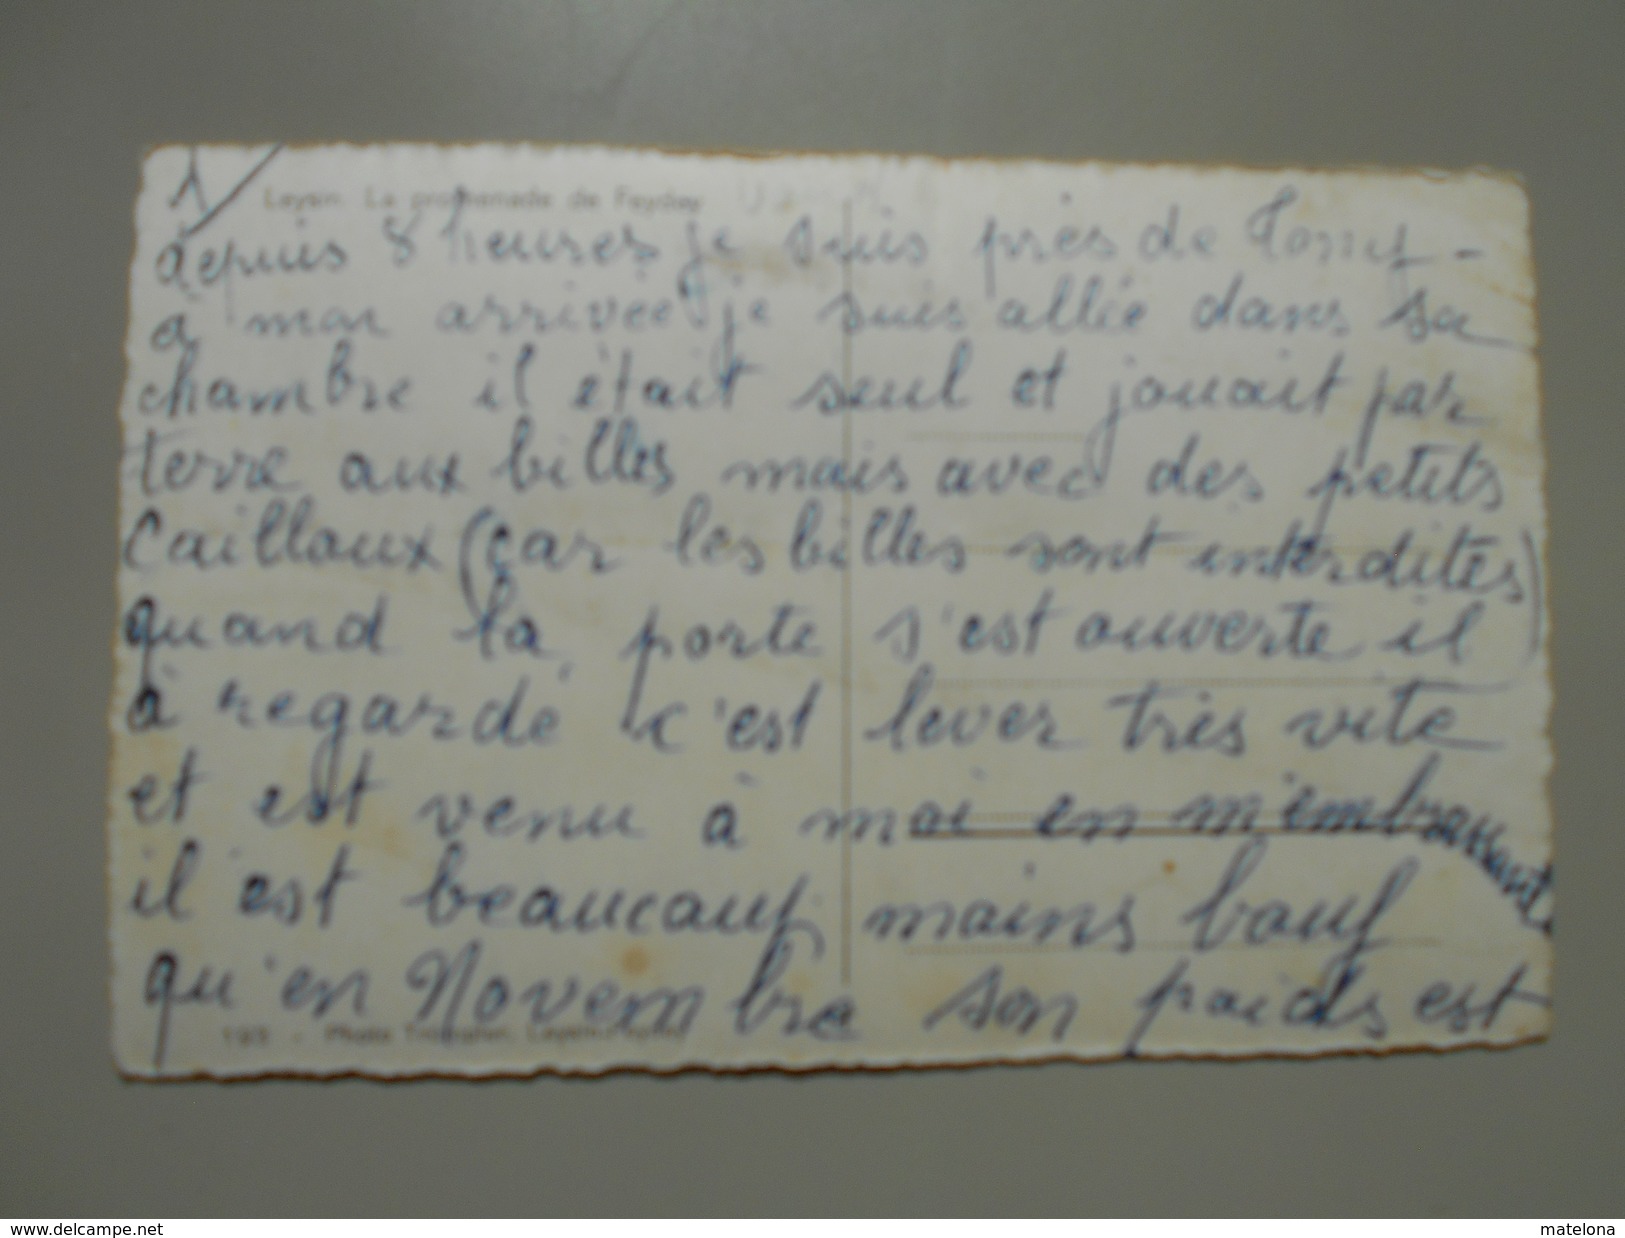 1
Leysin. La promenade de Feydey
depuis 8 heures je suis près de Tony -
a mon arrivée je suis allée dans sa
chambre il était seul et jouait par
terre aux billes mais avec des petits
Cailloux (car les billes sont interdites)
quand la porte s'est ouverte il
à regardé c'est lever très vite
et est venu à moi en m'embrassant
il est beaucoup moins bouf
qu'en Novembre son poids est
193 - Photo
www.delcampe.net
matelona